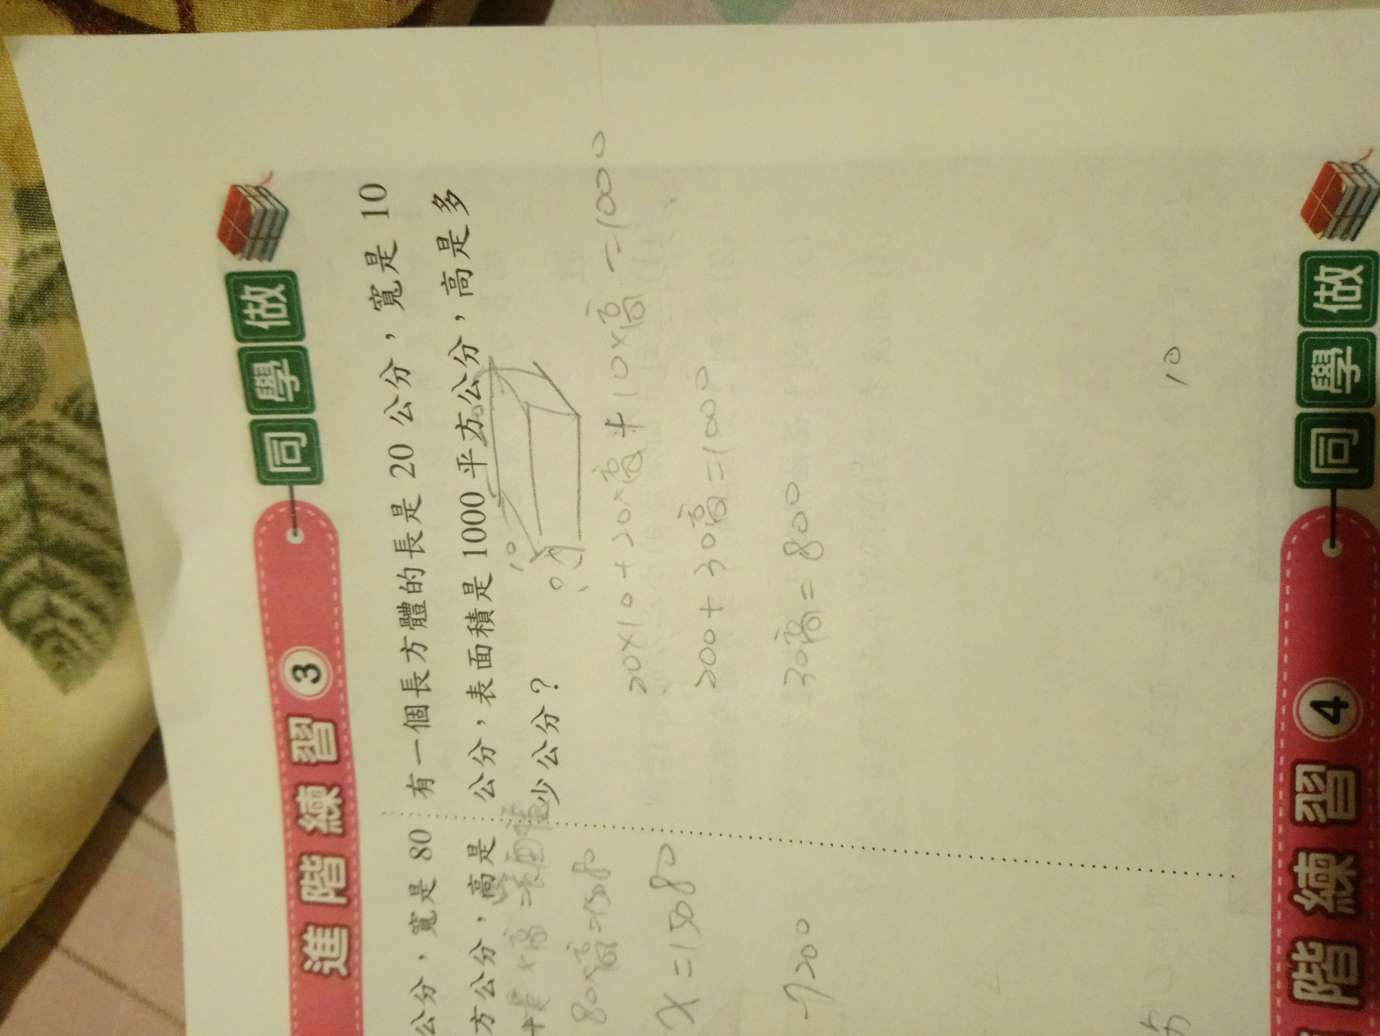 進階練習 3 同學做
有一個長方體的長是 20 公分，寬是 10
公分，表面積是 1000 平方公分，高是多
少公分？
10
10
20×10+20×高+10×高=1000
200+30高=1000
30高=800
公分、寬是 80
方公分，高是
80×高=1580
X=1580
7200
10
階練習 4 同學做